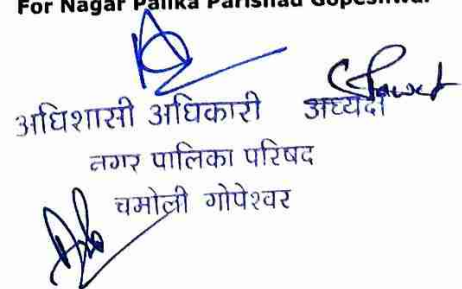 For Nagar Palika Parishad Gopeshwar
अधिशासी अधिकारी अध्यक्ष
नगर पालिका परिषद
चमोली गोपेश्वर